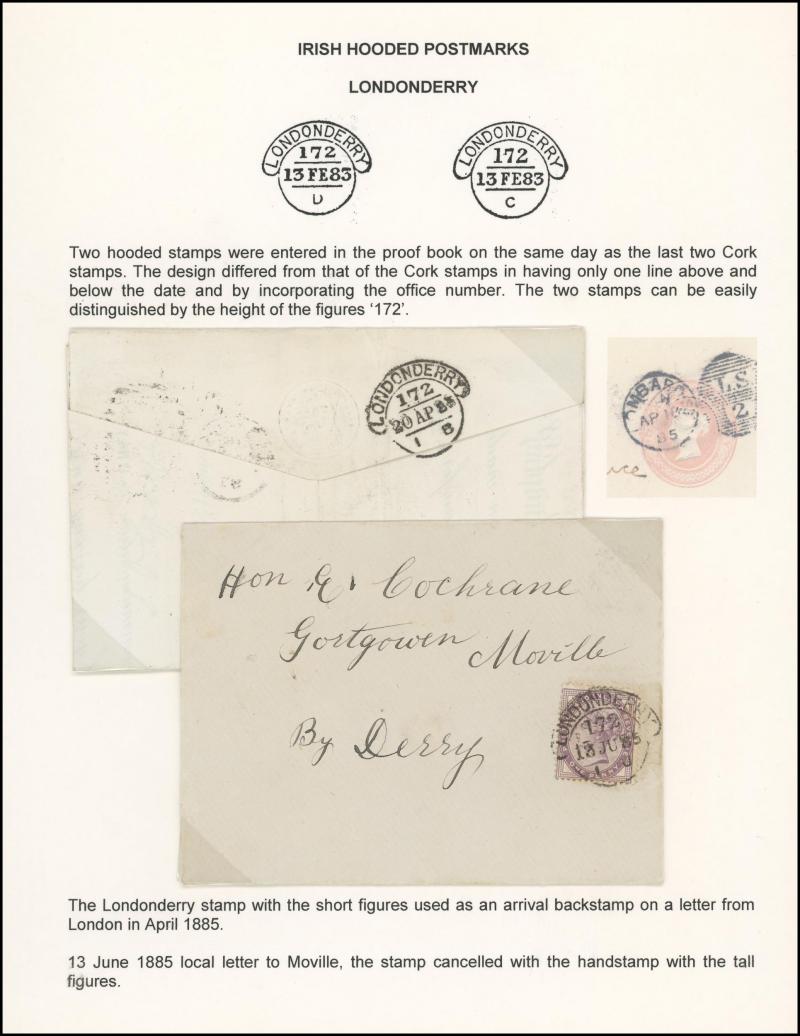 IRISH HOODED POSTMARKS
LONDONDERRY
LONDONDERRY
172
13 FE 83
D
LONDONDERRY
172
13 FE 83
C
Two hooded stamps were entered in the proof book on the same day as the last two Cork
stamps. The design differed from that of the Cork stamps in having only one line above and
below the date and by incorporating the office number. The two stamps can be easily
distinguished by the height of the figures ‘172’.
LONDONDERRY
172
20 AP 85
1 B
AP
85
L.S
2
Hon E. Cochrane
Gortgowen
Moville
By Derry
LONDONDERRY
172
13 JU 85
1
The Londonderry stamp with the short figures used as an arrival backstamp on a letter from
London in April 1885.
13 June 1885 local letter to Moville, the stamp cancelled with the handstamp with the tall
figures.